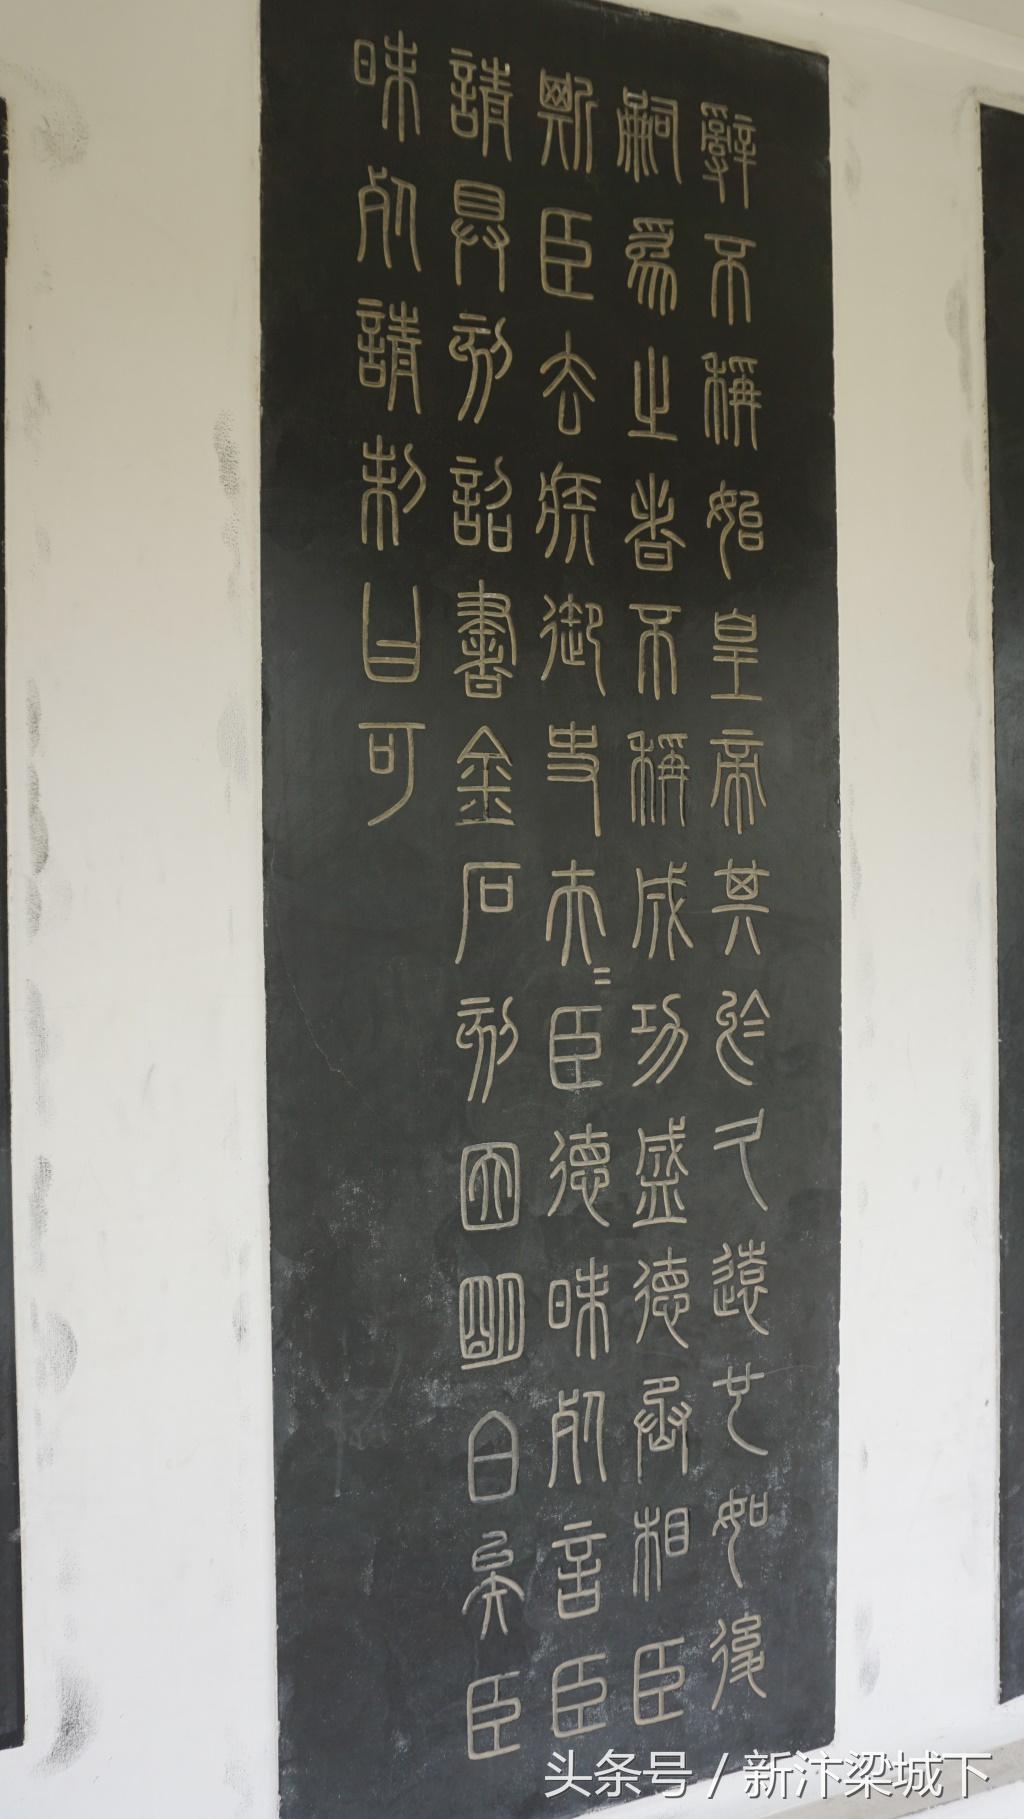 辭不稱始皇帝其於久遠也如後
嗣爲之者不稱成功盛德丞相臣
斯臣去疾御史夫〓臣德昧死言臣
請具刻詔書金石刻因明白矣臣
昧死請制曰可
头条号 / 新汴梁城下